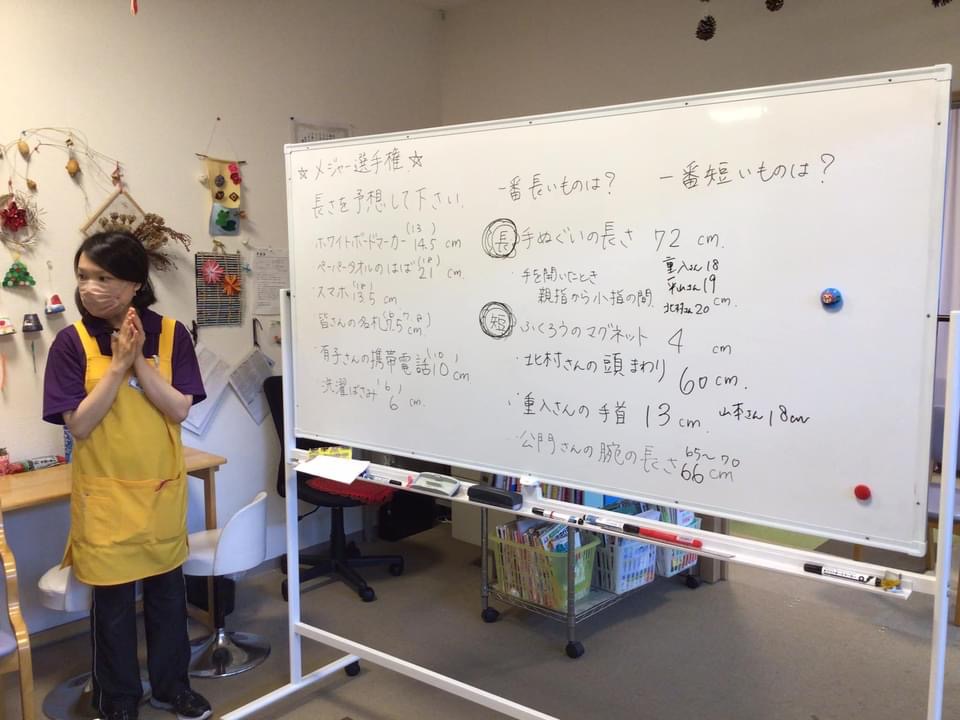 ☆メジャー選手権☆
長さを予想して下さい.
ホワイトボードマーカー (13) 14.5 cm
ペーパータオルのはば (18) 21 cm
スマホ (18) 13.5 cm
皆さんの名札 (6.7.8) 7.5 cm
有子さんの携帯電話 (10) 10 cm
洗濯ばさみ (6) 6 cm.
一番長いものは? 一番短いものは?
長 手ぬぐいの長さ 72 cm.
・手を開いたとき
親指から小指の間.
重入さん 18
さん 19
北村さん 20 cm.
短 ふくろうのマグネット 4 cm
・北村さんの頭まわり 60 cm.
・重入さんの手首 13 cm. 山本さん 18cm
・公門さんの腕の長さ 65〜70 66 cm